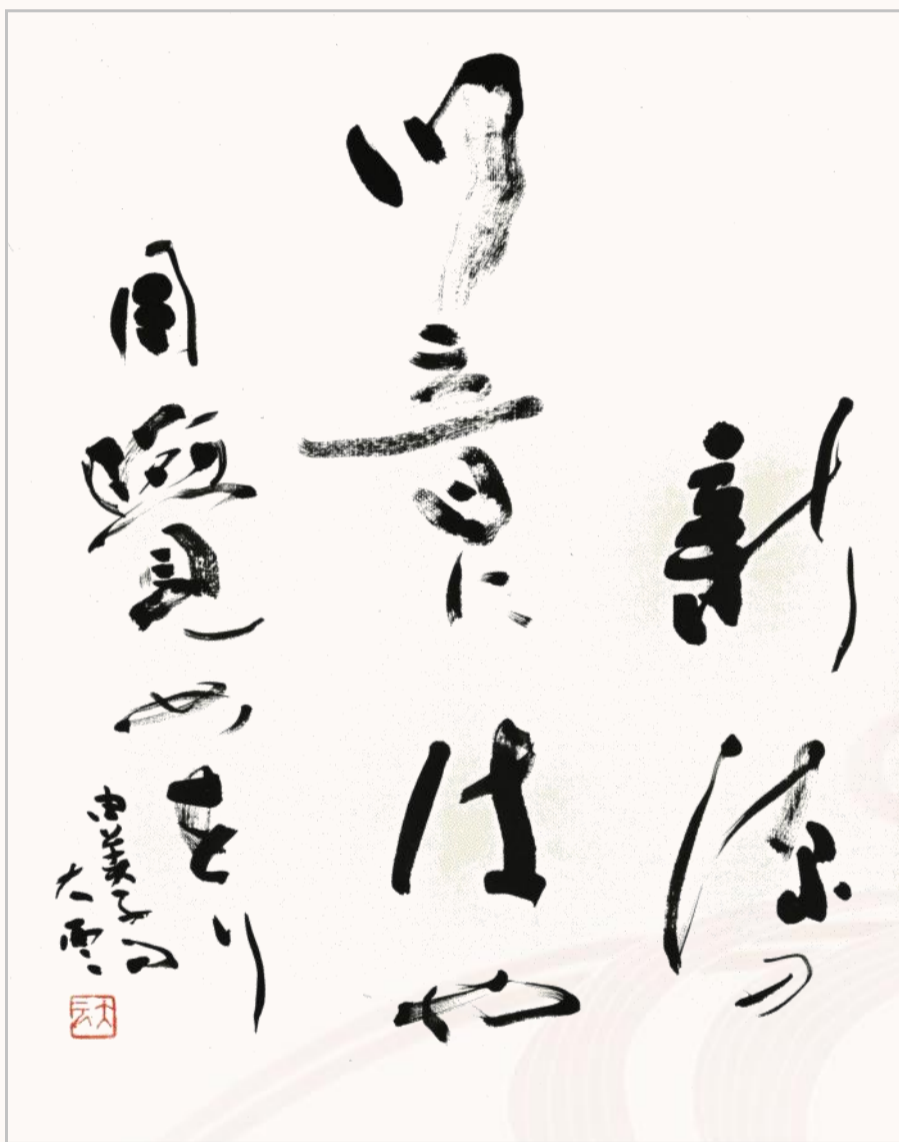 新涼の
川音にはや
目覺めをり
由美子句
大雲